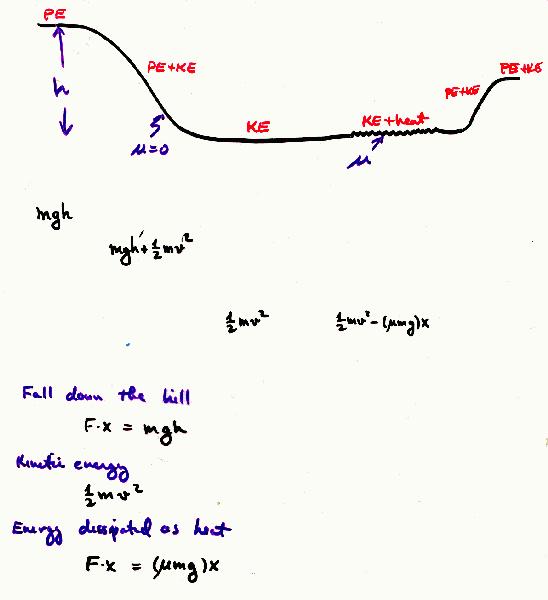 PE
h
PE+KE
μ=0
KE
KE+heat
μ
PE+KE
PE+KE
mgh
mgh'+½mv²
½mv²
½mv²-(μmg)x
Fall down the hill
F·x = mgh
Kinetic energy
½mv²
Energy dissipated as heat
F·x = (μmg)x